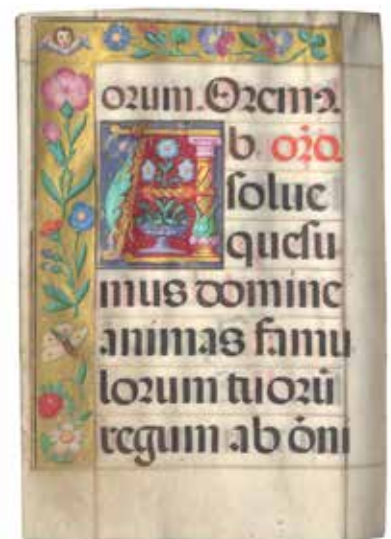 orum. Oremꝰ.
Ab. oro
ſolue
queſu
mus domine
animas famu
lorum tuorū
regum ab ōni